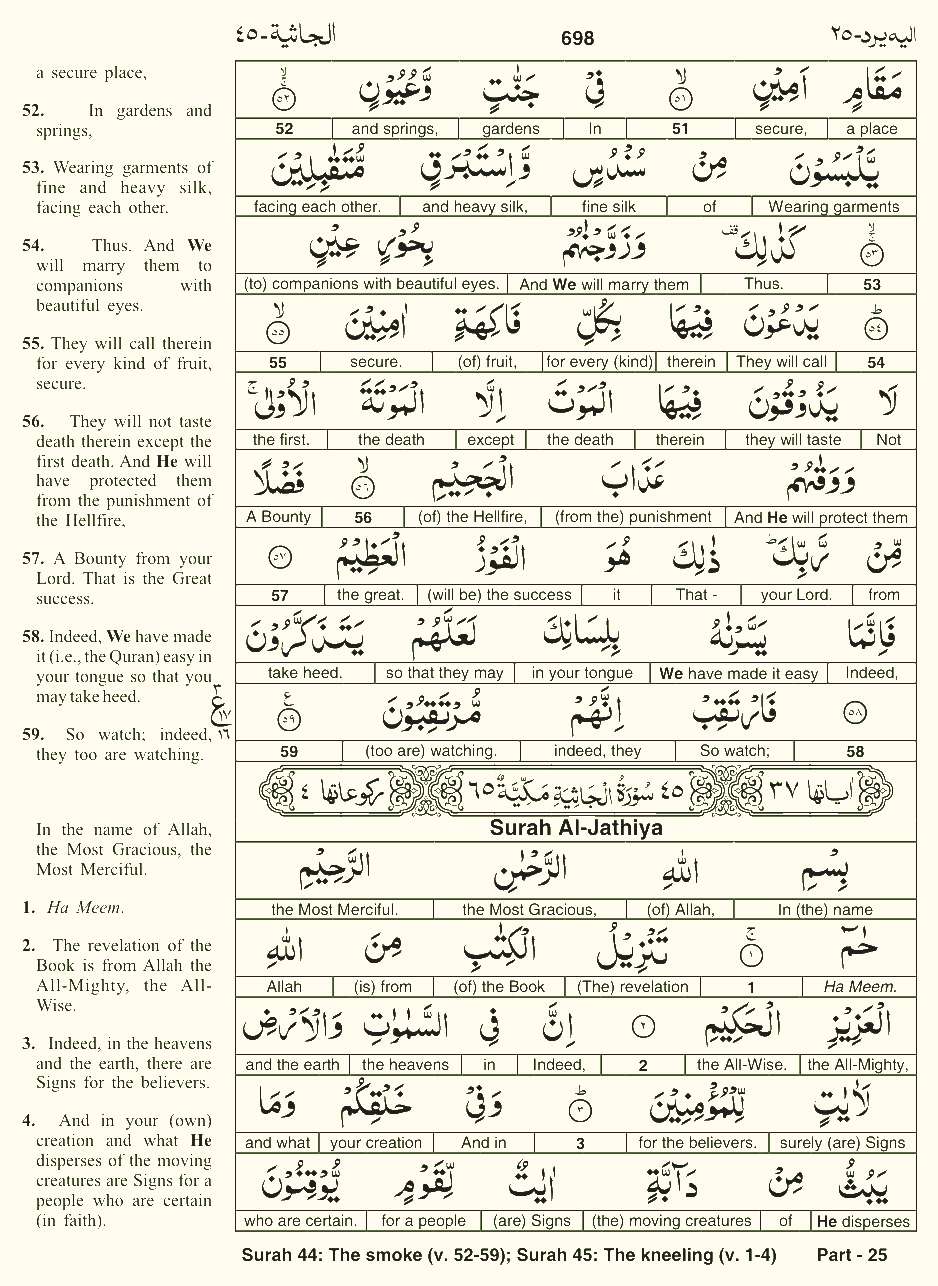 الجاثية-٤٥ 698 اليه يرد-٢٥
a secure place,
52. In gardens and
springs,
53. Wearing garments of
fine and heavy silk,
facing each other.
54. Thus. And We
will marry them to
companions with
beautiful eyes.
55. They will call therein
for every kind of fruit,
secure.
56. They will not taste
death therein except the
first death. And He will
have protected them
from the punishment of
the Hellfire,
57. A Bounty from your
Lord. That is the Great
success.
58. Indeed, We have made
it (i.e., the Quran) easy in
your tongue so that you
may take heed.
59. So watch; indeed,
they too are watching.
In the name of Allah,
the Most Gracious, the
Most Merciful.
1. Ha Meem.
2. The revelation of the
Book is from Allah the
All-Mighty, the All-
Wise.
3. Indeed, in the heavens
and the earth, there are
Signs for the believers.
4. And in your (own)
creation and what He
disperses of the moving
creatures are Signs for a
people who are certain
(in faith).
مَقَامٍ اَمِيْنٍ ۙ‏﴿٥١﴾ فِيْ جَنّٰتٍ وَّعُيُوْنٍ ۙ‏﴿٥٢﴾
52 and springs, gardens In 51 secure, a place
يَّلْبَسُوْنَ مِنْ سُنْدُسٍ وَّاِسْتَبْرَقٍ مُّتَقٰبِلِيْنَ
facing each other. and heavy silk, fine silk of Wearing garments
﴿٥٣﴾ۚۙ كَذٰلِكَ قف وَزَوَّجْنٰهُمْ بِحُوْرٍ عِيْنٍ
(to) companions with beautiful eyes. And We will marry them Thus. 53
﴿٥٤﴾ؕ يَدْعُوْنَ فِيْهَا بِكُلِّ فَاكِهَةٍ اٰمِنِيْنَ ۙ‏﴿٥٥﴾
55 secure. (of) fruit, for every (kind) therein They will call 54
لَا يَذُوْقُوْنَ فِيْهَا الْمَوْتَ اِلَّا الْمَوْتَةَ الْاُوْلٰى ۚ
the first. the death except the death therein they will taste Not
وَوَقٰىهُمْ عَذَابَ الْجَحِيْمِ ۙ‏﴿٥٦﴾ فَضْلًا
A Bounty 56 (of) the Hellfire, (from the) punishment And He will protect them
مِّنْ رَّبِّكَ ؕ ذٰلِكَ هُوَ الْفَوْزُ الْعَظِيْمُ ﴿٥٧﴾
57 the great. (will be) the success it That - your Lord. from
فَاِنَّمَا يَسَّرْنٰهُ بِلِسَانِكَ لَعَلَّهُمْ يَتَذَكَّرُوْنَ
take heed. so that they may in your tongue We have made it easy Indeed,
﴿٥٨﴾ فَارْتَقِبْ اِنَّهُمْ مُّرْتَقِبُوْنَ ﴿٥٩﴾ ع
٣ ع ١٧ ١٦
59 (too are) watching. indeed, they So watch; 58
اٰياتها ٣٧ ٤٥ سُوْرَةُ الْجَاثِيَةِ مَكِّيَّةٌ ٦٥ ركوعاتها ٤
Surah Al-Jathiya
بِسْمِ اللّٰهِ الرَّحْمٰنِ الرَّحِيْمِ
the Most Merciful. the Most Gracious, (of) Allah, In (the) name
حٰمٓ ۚ‏﴿١﴾ تَنْزِيْلُ الْكِتٰبِ مِنَ اللّٰهِ
Allah (is) from (of) the Book (The) revelation 1 Ha Meem.
الْعَزِيْزِ الْحَكِيْمِ ﴿٢﴾ اِنَّ فِي السَّمٰوٰتِ وَالْاَرْضِ
and the earth the heavens in Indeed, 2 the All-Wise. the All-Mighty,
لَاٰيٰتٍ لِّلْمُؤْمِنِيْنَ ؕ‏﴿٣﴾ وَفِيْ خَلْقِكُمْ وَمَا
and what your creation And in 3 for the believers. surely (are) Signs
يَبُثُّ مِنْ دَآبَّةٍ اٰيٰتٌ لِّقَوْمٍ يُّوْقِنُوْنَ
who are certain. for a people (are) Signs (the) moving creatures of He disperses
Surah 44: The smoke (v. 52-59); Surah 45: The kneeling (v. 1-4) Part - 25